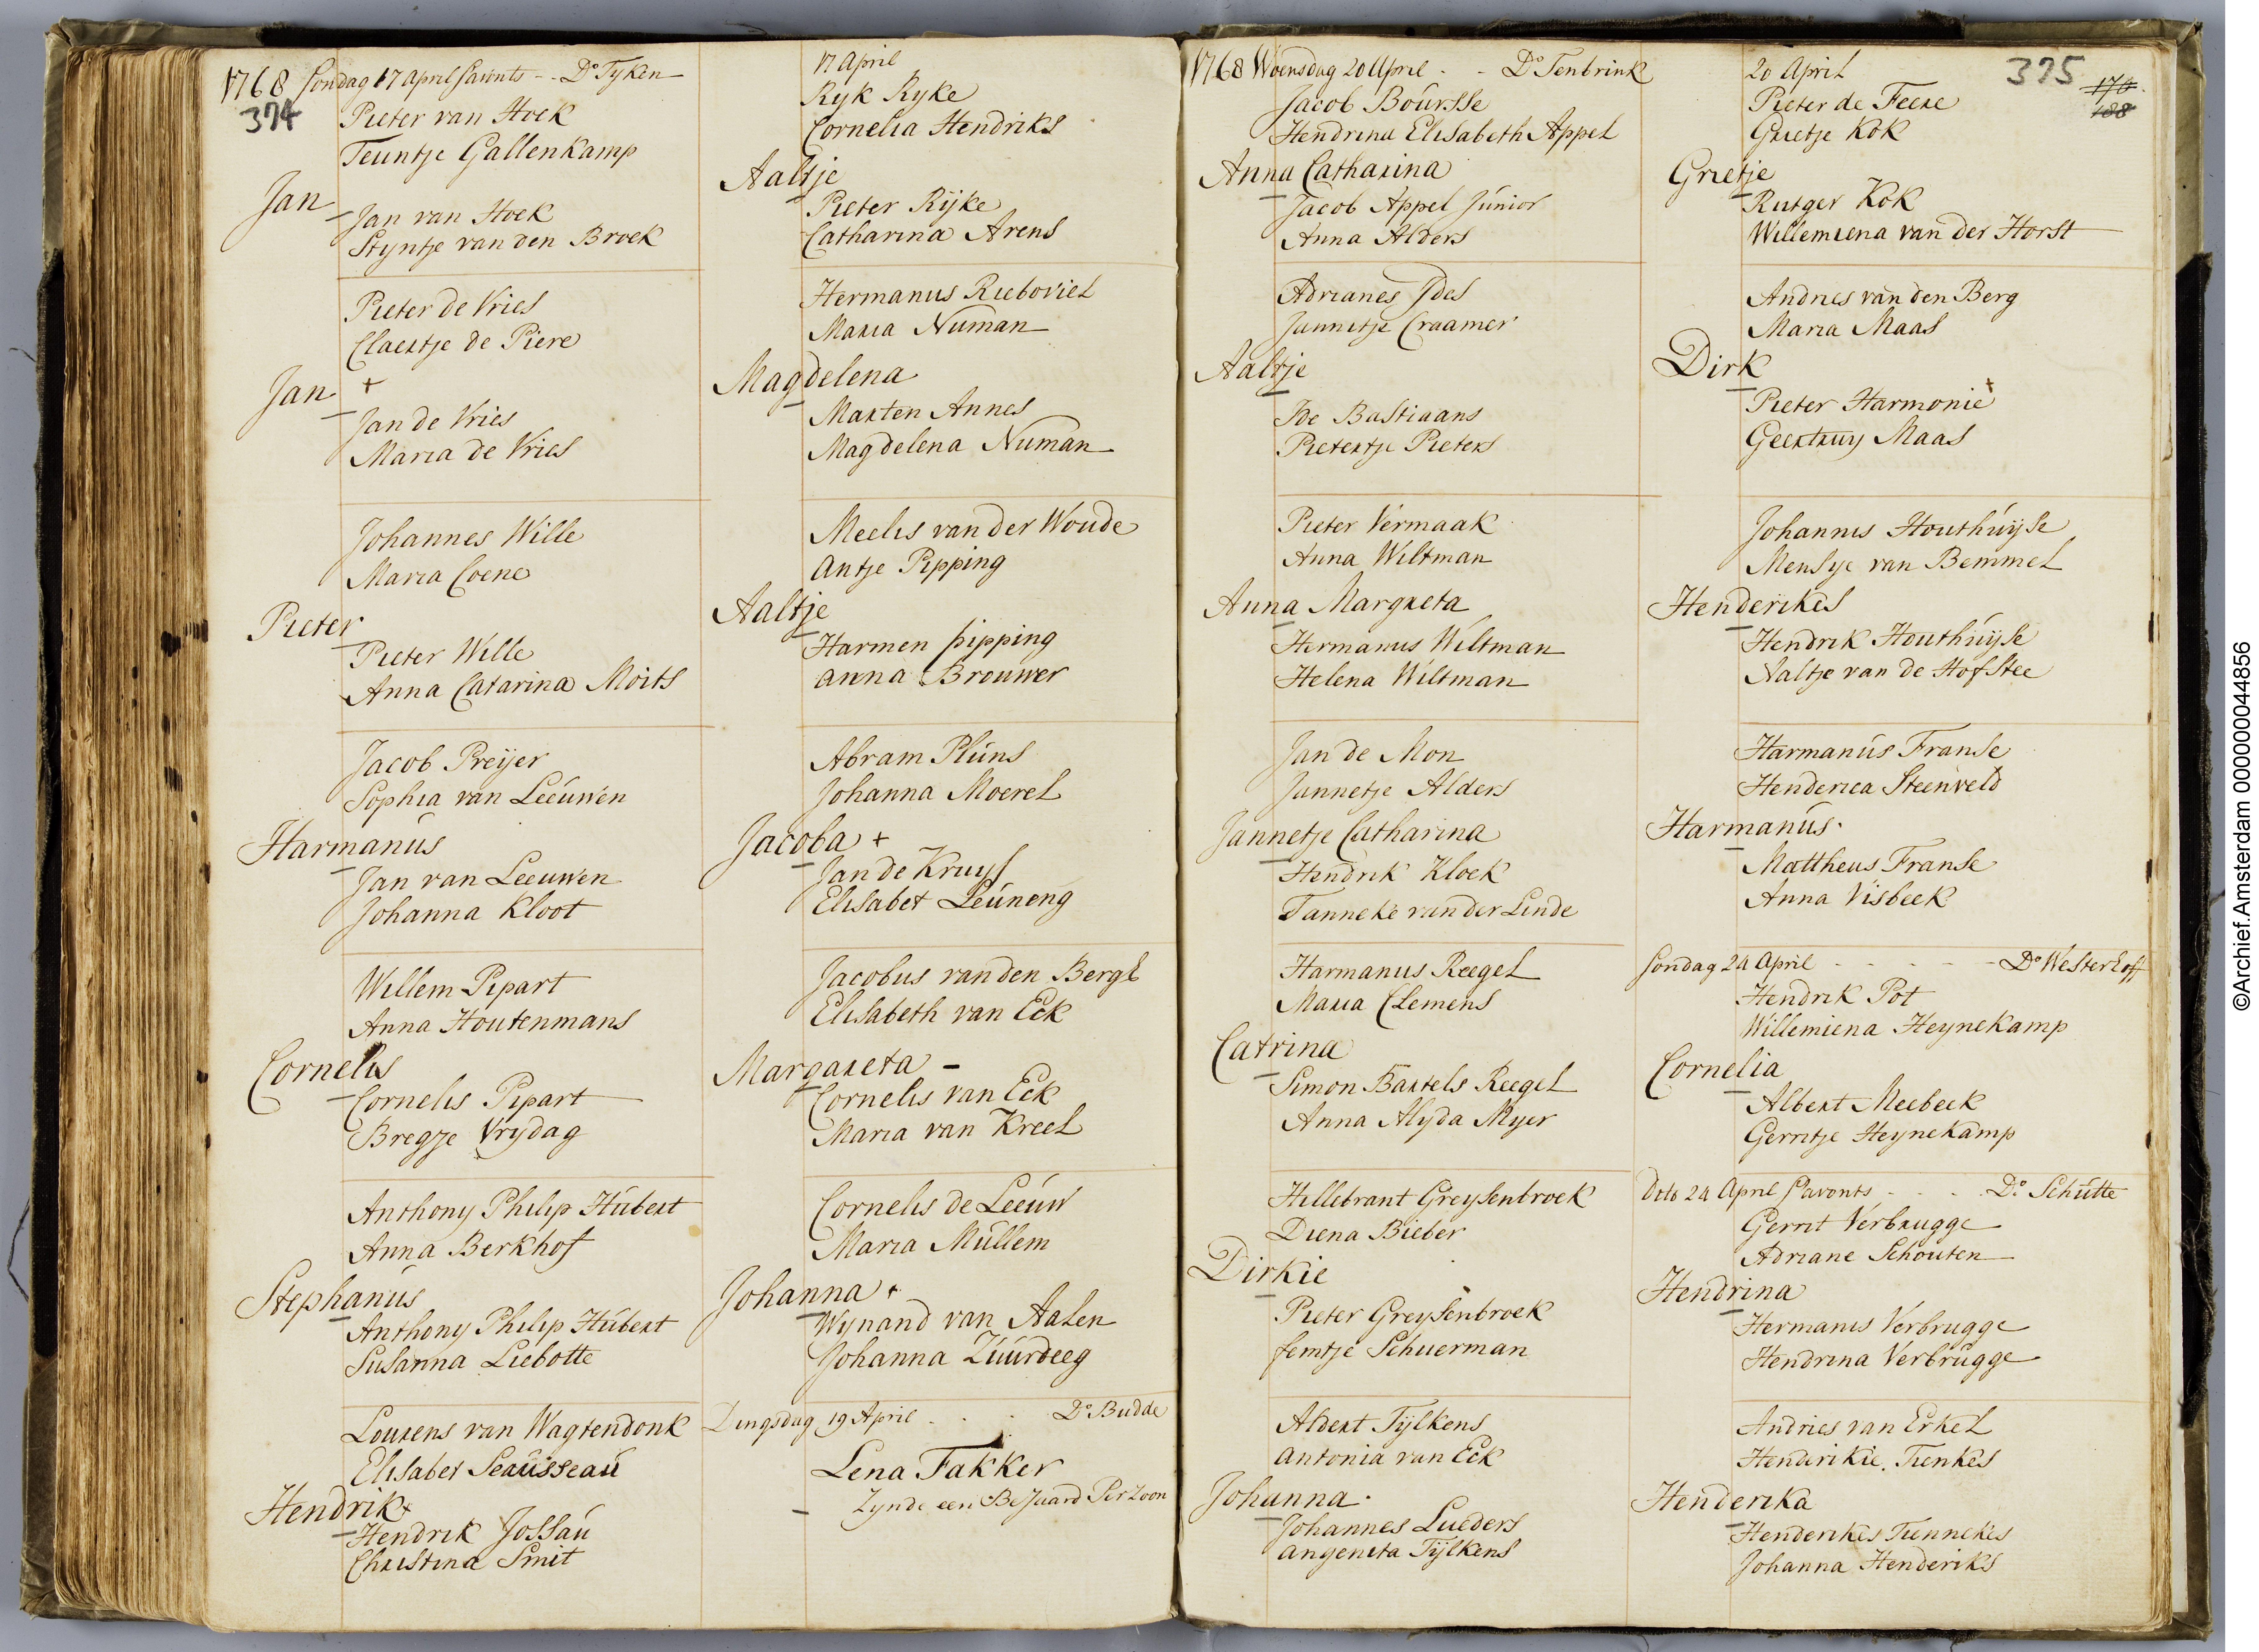 1768 Sondag 17 April Savonts - - Do Tyken
374
Pieter van Hoek
Teuntje Gallenkamp
Jan
Jan van Hoek
Styntje van den Broek
Pieter de Vries
Claertje de Piere
Jan +
Jan de Vries
Maria de Vries
Johannes Wille
Maria Coene
Pieter
Pieter Wille
Anna Catarina Moits
Jacob Preijer
Sophia van Leeuwen
Harmanus
Jan van Leeuwen
Johanna Kloot
Willem Pipart
Anna Houtenmans
Cornelis
Cornelis Pipart
Bregje Vrydag
Anthony Philip Hubert
Anna Berkhof
Stephanus
Anthony Philip Hubert
Susanna Liebotte
Lourens van Wagtendonk
Elisabet Seausseau
Hendrik +
Hendrik Jossau
Christina Smit
17 April
Ryk Ryke
Cornelia Hendriks
Aaltje
Pieter Rijke
Catharina Arens
Hermanus Rieboviel
Maria Numan
Magdelena
Marten Annes
Magdelena Numan
Meelis van der Woude
Antje Pipping
Aaltje
Harmen pipping
anna Brouwer
Abram Pluns
Johanna Moerel
Jacoba +
Jan de Kruyf
Elisabet Leuneng
Jacobus van den Bergh
Elisabeth van Eck
Margareta -
Cornelis van Eck
Maria van Kreel
Cornelis de Leeuw
Maria Mullem
Johanna +
Wynand van Aalen
Johanna Zuurdeeg
Dingsdag 19 April - - Do Budde
Lena Fakker
Zynde een Bejaard Perzoon
1768 Woensdag 20 April - - Do Tenbrink
Jacob Boursse
Hendrina Elisabeth Appel
Anna Catharina
Jacob Appel Junior
Anna Alders
Adrianes Ides
Jannetje Craamer
Aaltje
Ide Bastiaans
Pietertje Pieters
Pieter Vermaak
Anna Wiltman
Anna Margreta
Hermanus Wiltman
Helena Wiltman
Jan de Mon
Jannetje Alders
Jannetje Catharina
Hendrik Kloek
Tanneke van der Linde
Harmanus Reegel
Maria Clemens
Catrina
Simon Bartels Reegel
Anna Alyda Myer
Hillebrant Greysenbroek
Diena Bieber
Dirkie
Pieter Greysenbroek
femtje Schuerman
Albert Tijlkens
antonia van Eck
Johanna
Johannes Lueders
angenita Tijlkens
20 April
375
176
188
Pieter de Feere
Grietje Kok
Grietje
Rutger Kok
Willemiena van der Horst
Andries van den Berg
Maria Maas
Dirk
Pieter Harmonie +
Geertruy Maas
Johannis Houthuyse
Mensje van Bemmel
Henderikes
Hendrik Houthuyse
Naltje van de Hofstee
Harmanus Franse
Henderica Steenveld
Harmanus
Mattheus Franse
Anna Visbeek
Sondag 24 April - - - - - Do Westerhoff
Hendrik Pot
Willemiena Heynekamp
Cornelia
Albert Meebeek
Gerritje Heynekamp
Dito 24 April Savonts - - - Do Schutte
Gerrit Verbrugge
Adriane Schouten
Hendrina
Hermanus Verbrugge
Hendrina Verbrugge
Andries van Erkel
Henderikie Tienkes
Henderika
Henderikes Tiennekes
Johanna Henderiks
©Archief.Amsterdam 000000044856